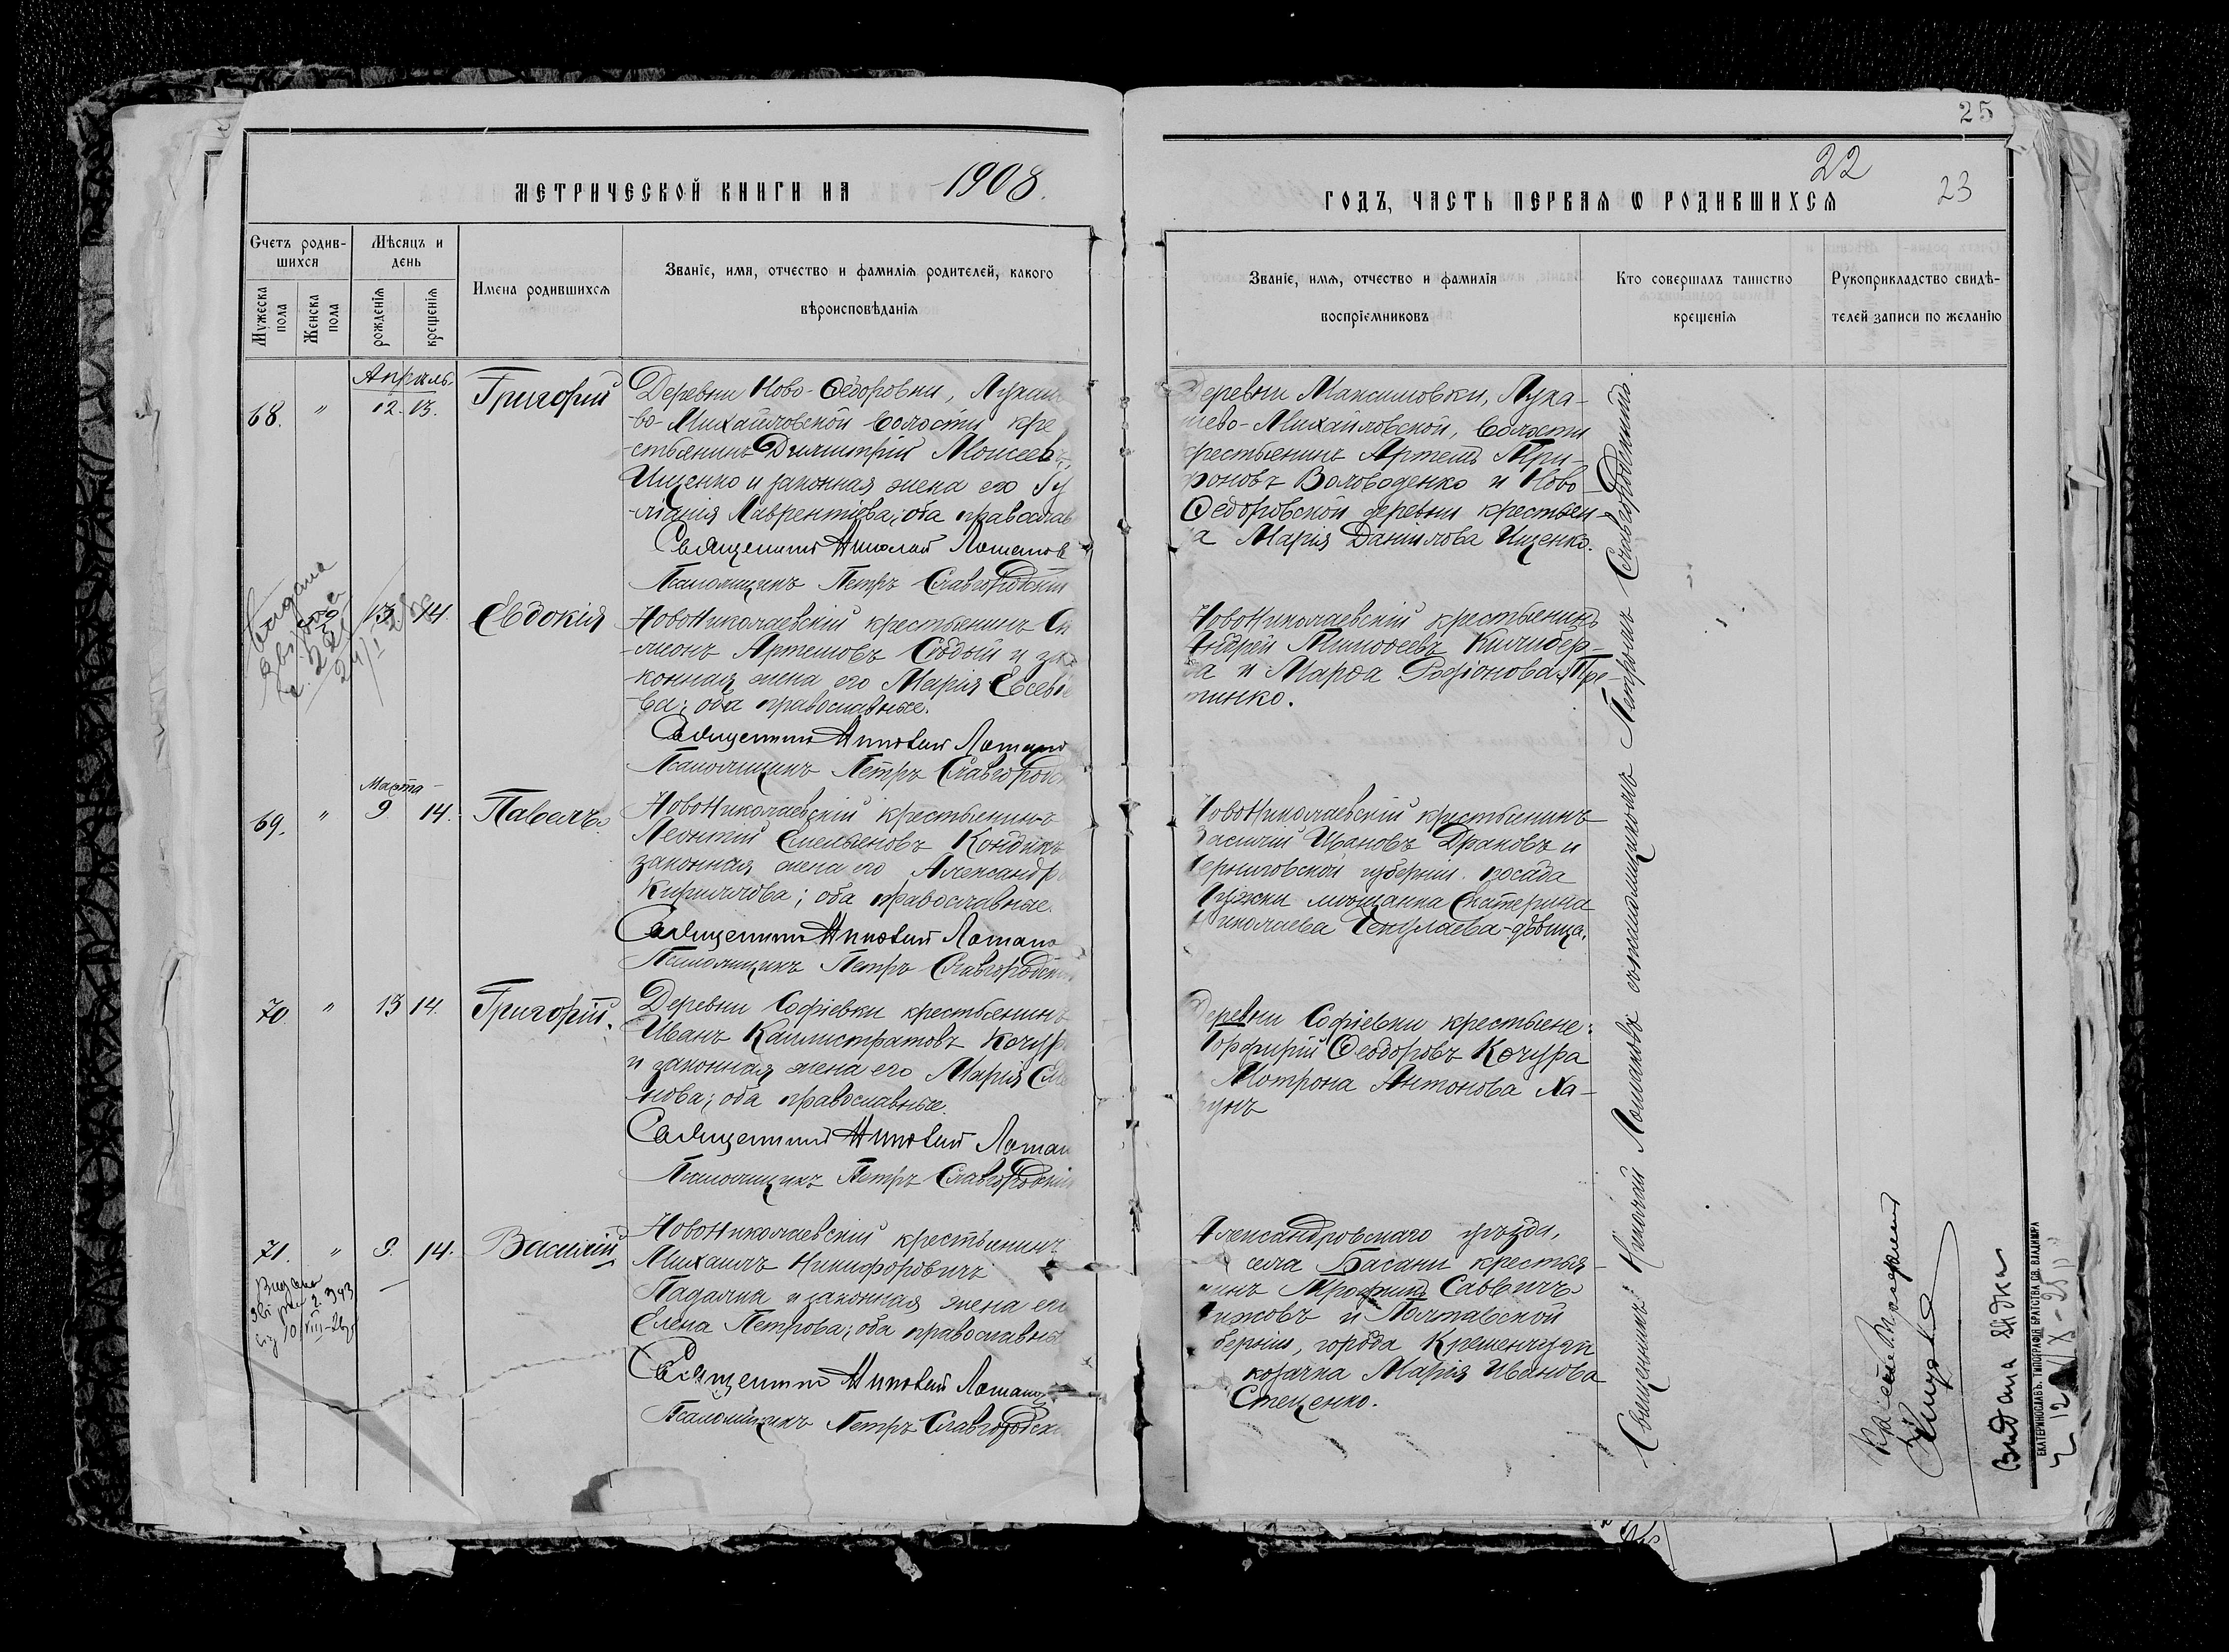 25
22
23
МЕТРИЧЕСКОЙ КНИГИ НА 1908.
ГОДЪ, ЧАСТЬ ПЕРВАЯ Ѡ РОДИВШИХСЯ
Счетъ родив-
шихся
Мужеска
пола
Женска
пола
Мѣсяцъ и
день
рожденія
крещенія
Имена родившихся
Званіе, имя, отчество и фамилія родителей, какого
вѣроисповѣданія
Званіе, имя, отчество и фамилія
воспріемниковъ
Кто совершалъ таинство
крещенія
Рукоприкладство свидѣ-
телей записи по желанію
Апрѣль.
68. " 12. 13. Григорій
Деревни Ново-Ѳедоровки,
во-Михайловской волости кре
стьянинъ Димитрій Моисеевъ
Ищенко и законная жена его
Лаврентіева; оба православ
Священникъ Николай Ломанов
Псаломщикъ Петръ Славгородскій
Деревни Максимовки, Лука-
шево-Михайловской, волости
крестьянинъ Артемъ Три-
фоновъ Володенко и Ново-
Ѳедоровской деревни крестьян-
а Марія Данилова Ищенко.
13. 14. Евдокія
Новониколаевскій крестьянинъ Си
меонъ Артемовъ Сѣдый и за
конная жена его Марія Евсеві
ва; оба православные.
Священникъ Николай Ломано
Псаломщикъ Петръ Славгородс
Новониколаевскій крестьянинъ
Андрей Тимоѳеевъ
и Марѳа Родіонова
тинко.
Видана
24/I
Марта
69. " 9 14. Павелъ.
Новониколаевскій крестьянинъ
Леонтій Емельяновъ
законная жена его Александр
Кириллова; оба православные.
Священникъ Николай Ломано
Псаломщикъ Петръ Славгородскі
Новониколаевскій крестьянинъ
Василій Ивановъ Драновъ и
Черниговской губерніи. посада
мѣщанка Екатерина
Николаева дѣвица.
70. " 13 14. Григорій.
Деревни Софіевки крестьянинъ
Иванъ Каллистратовъ Кочур
и законная жена его Марія Сим
нова; оба православные.
Священникъ Николай Ломан
Псаломщикъ Петръ Славгородскій
Деревни Софіевки крестьяне:
Порфирій Ѳеодоровъ Кочура
Мотрона Антонова Ха-
рунъ
71. " 9. 14. Василій
Новониколаевскій крестьянинъ
Михаилъ Никифоровичъ
Падалка и законная жена его
Елена Петрова; оба православны
Священникъ Николай Ломанов
Псаломщикъ Петръ Славгородскі
Александровскаго уѣзда,
села Басани крестья-
нинъ Трофимъ Саввичъ
и Полтавской
берніи, города Кременчуга
козачка Марія Иванова
Стеценко.
Видана
343
10/VIII-26р
Священникъ Николай Ломановъ съ псаломщикомъ Петромъ Славгородскимъ.
Видана
12/IX-28
ЕКАТЕРИНОСЛАВЪ. ТИПОГРАФІЯ БРАТСТВА СВ. ВЛАДИМІРА